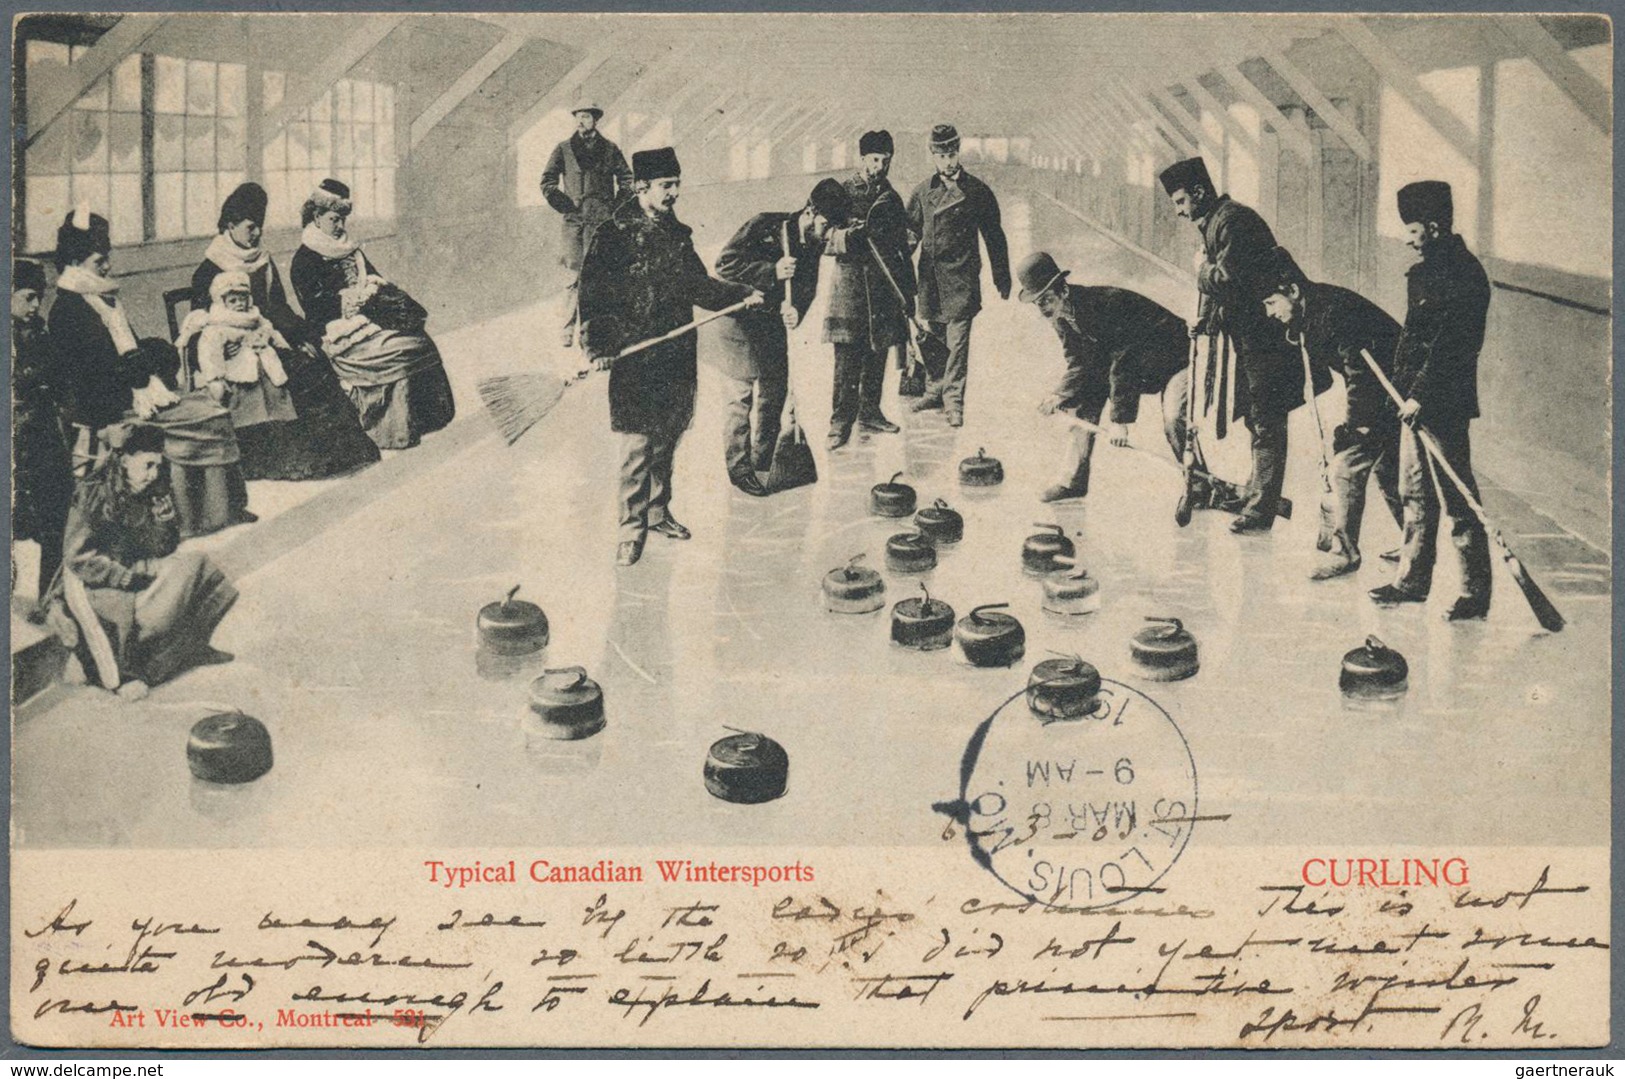 ST. LOUIS, MO.
MAR 8
9-AM
190
Typical Canadian Wintersports
CURLING
As you may see by the ladies' costumes This is not
quite modern, so little so, I did not yet meet some
one old enough to explain that primitive winter
sport. R. M.
Art View Co., Montreal 531
www.delcampe.net
gaertnerauk